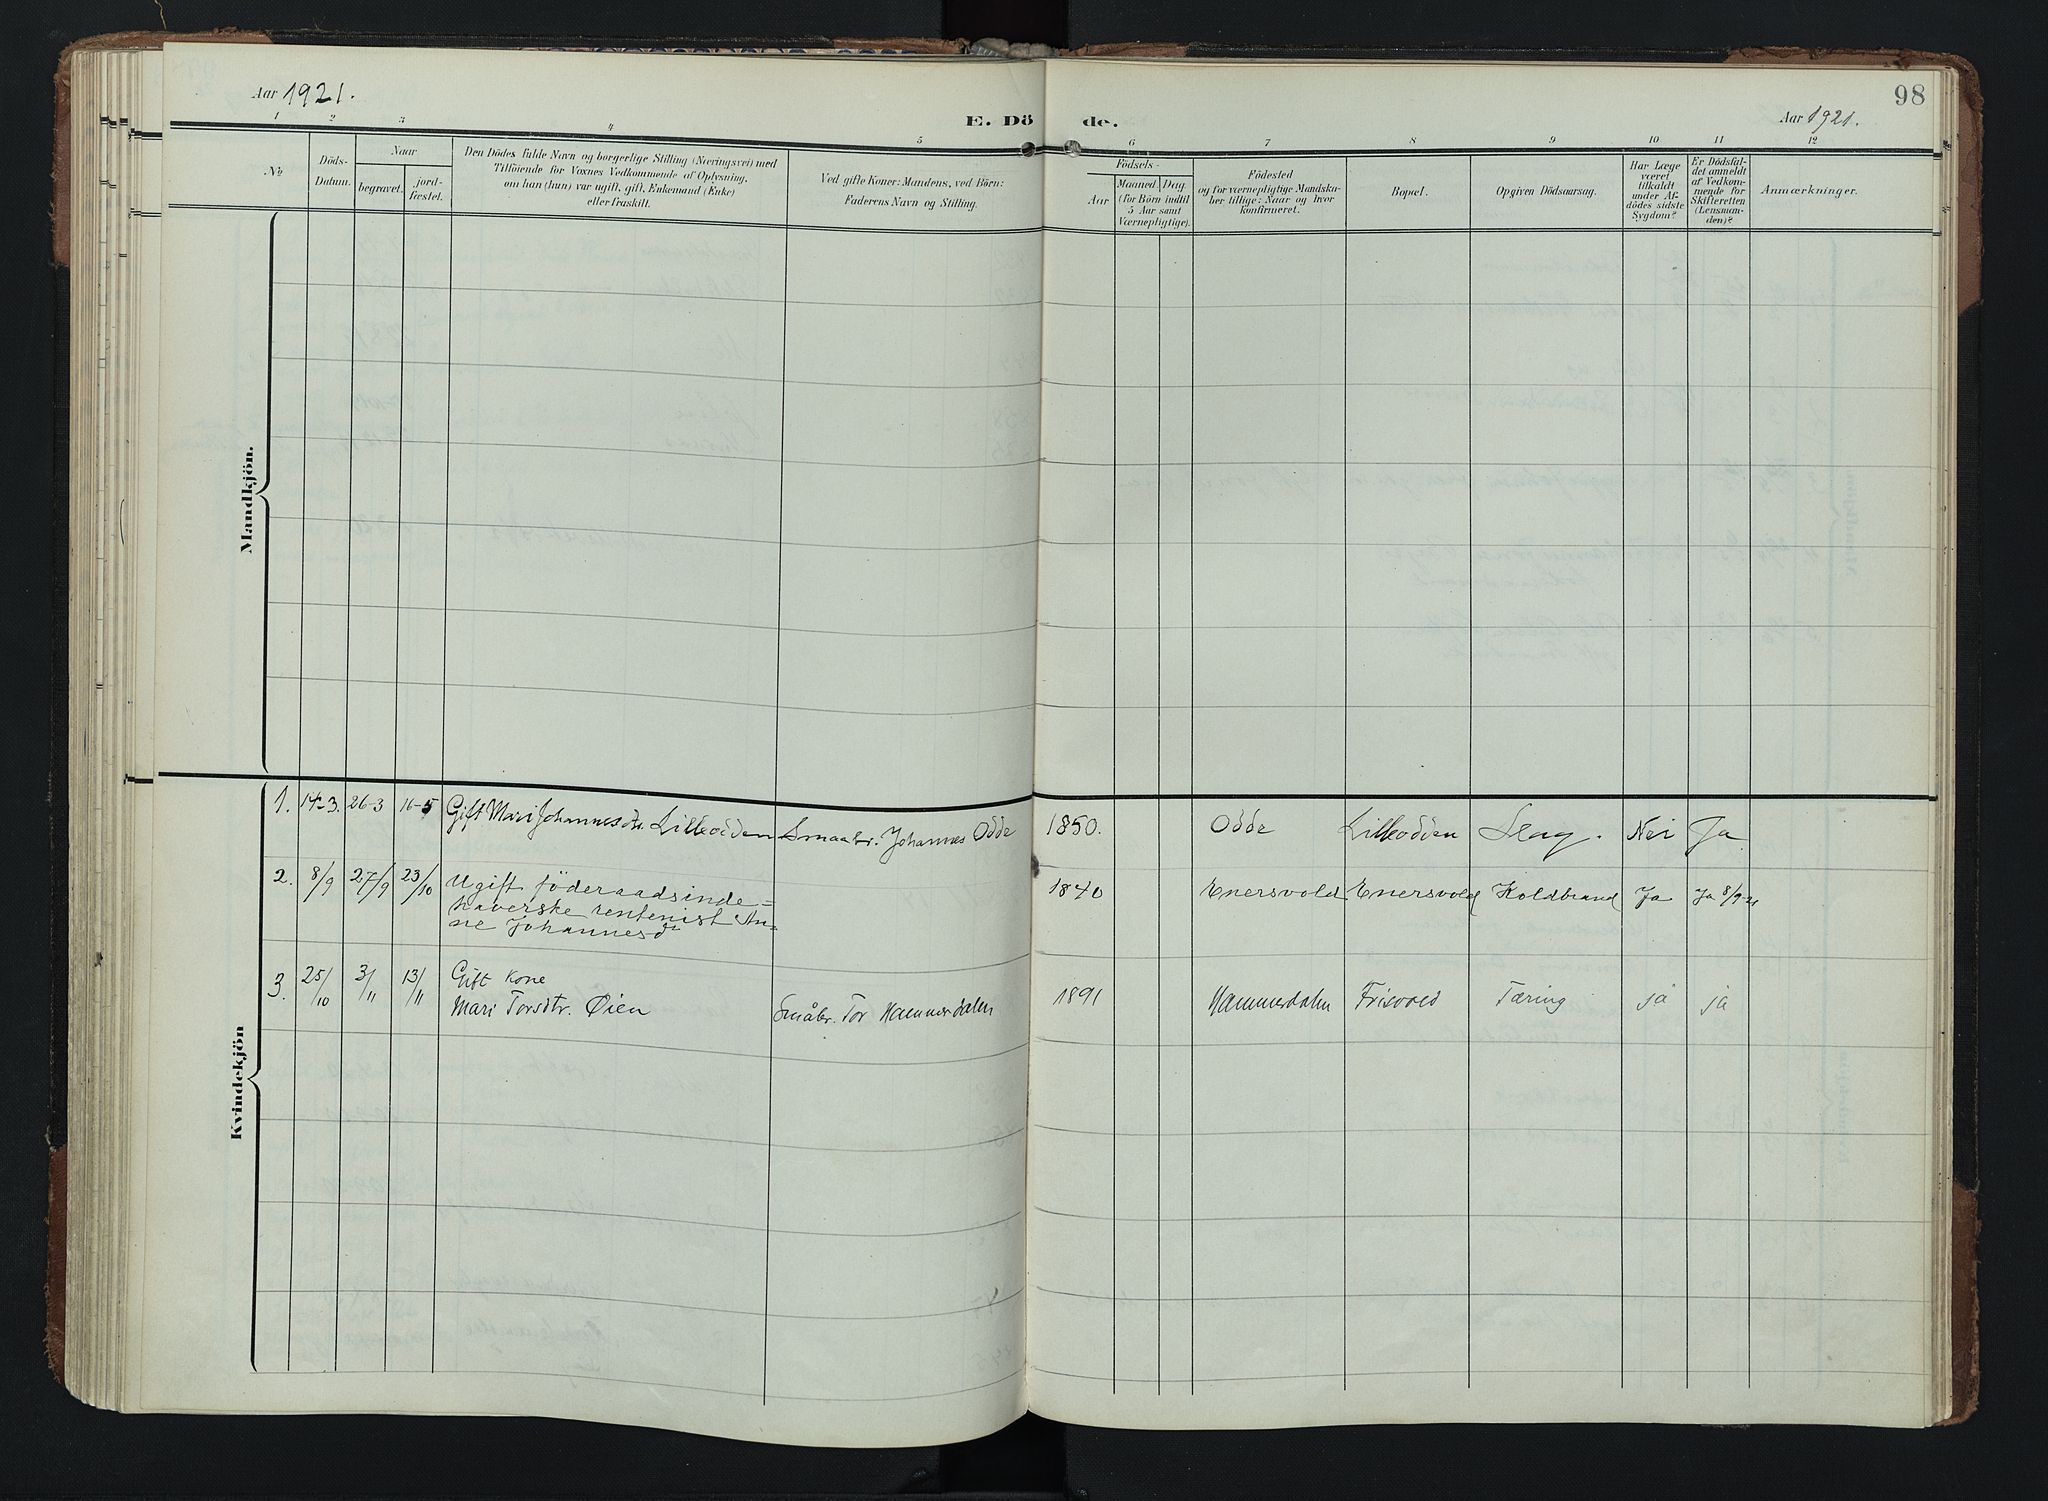 Aar 1921.
98
Aar 1921.
E. Dö de.
1 2 3 4 5 6 7 8 9 10 11 12
No
Döds-
Datum.
Naar
begravet.
jord-
fæstet.
Den Dödes fulde Navn og borgerlige Stilling (Næringsvei) med
Tilföiende for Voxnes Vedkommende af Oplysning,
om han (hun) var ugift, gift, Enkemand (Enke)
eller fraskilt.
Ved gifte Koner: Mandens, ved Börn:
Faderens Navn og Stilling.
Födsels-
Aar
Maaned.
Dag.
(for Börn indtil
5 Aar samt
Værnepligtige).
Födested
og for værnepligtige Mandska-
ber tillige: Naar og hvor
konfirmeret.
Bopæl.
Opgiven Dödsaarsag.
Har Læge
været
tilkaldt
under Af-
dödes sidste
Sygdom?
Er Dödsfal-
det anmeldt
af Vedkom-
mende for
Skifteretten
(Lensman-
den)?
Anmærkninger.
Mandkjön.
Kvindekjön
1. 14-3. 26-3 16-5 Gift Mari Johannesdtr. Lilleodden Smaabr. Johannes Odde 1850. Odde Lilleodden Slag. Nei Ja
2. 8/9 27/9 23/10 Ugift föderaadsinde=
haverske rentenist An-
ne Johannesdtr
1840 Enersvold Enersvold Koldbrand Ja Ja 8/9-21
3. 25/10 3/11 13/11 Gift kone
Mari Torsdtr. Øien Småbr. Tor Hammerdalen 1891 Hammerdalen Frisvold Tæring ja ja